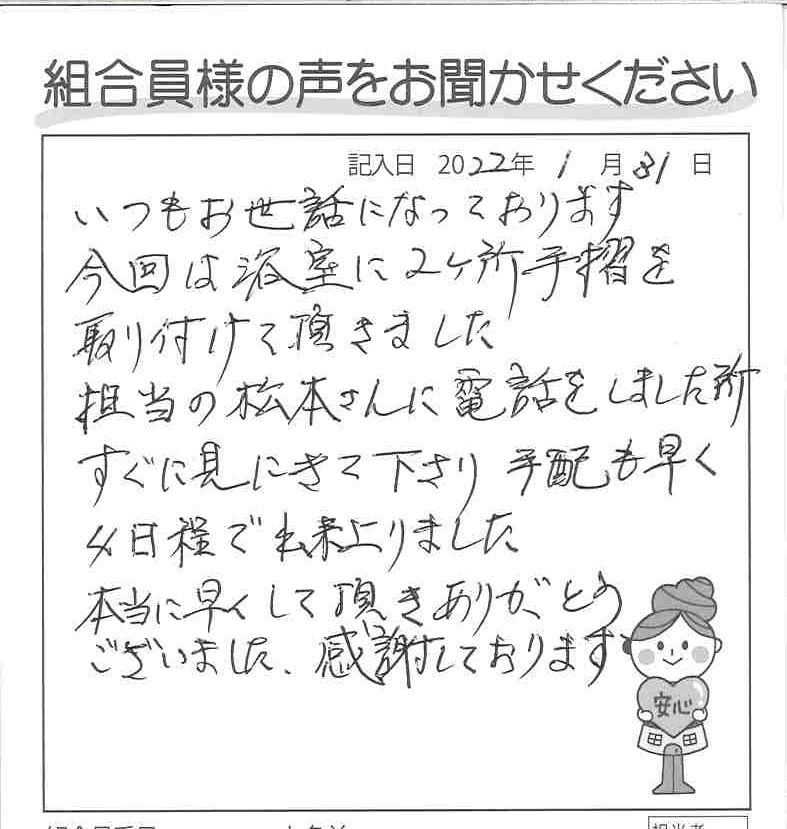 組合員様の声をお聞かせください
記入日 2022年 1月31日
いつもお世話になっております
今回は浴室に2ヶ所手摺を
取り付けて頂きました
担当の松本さんに電話をしました所
すぐに見にきて下さり 手配も早く
4日程で出来上りました
本当に早くして頂きありがとう
ございました、感謝しております
安心